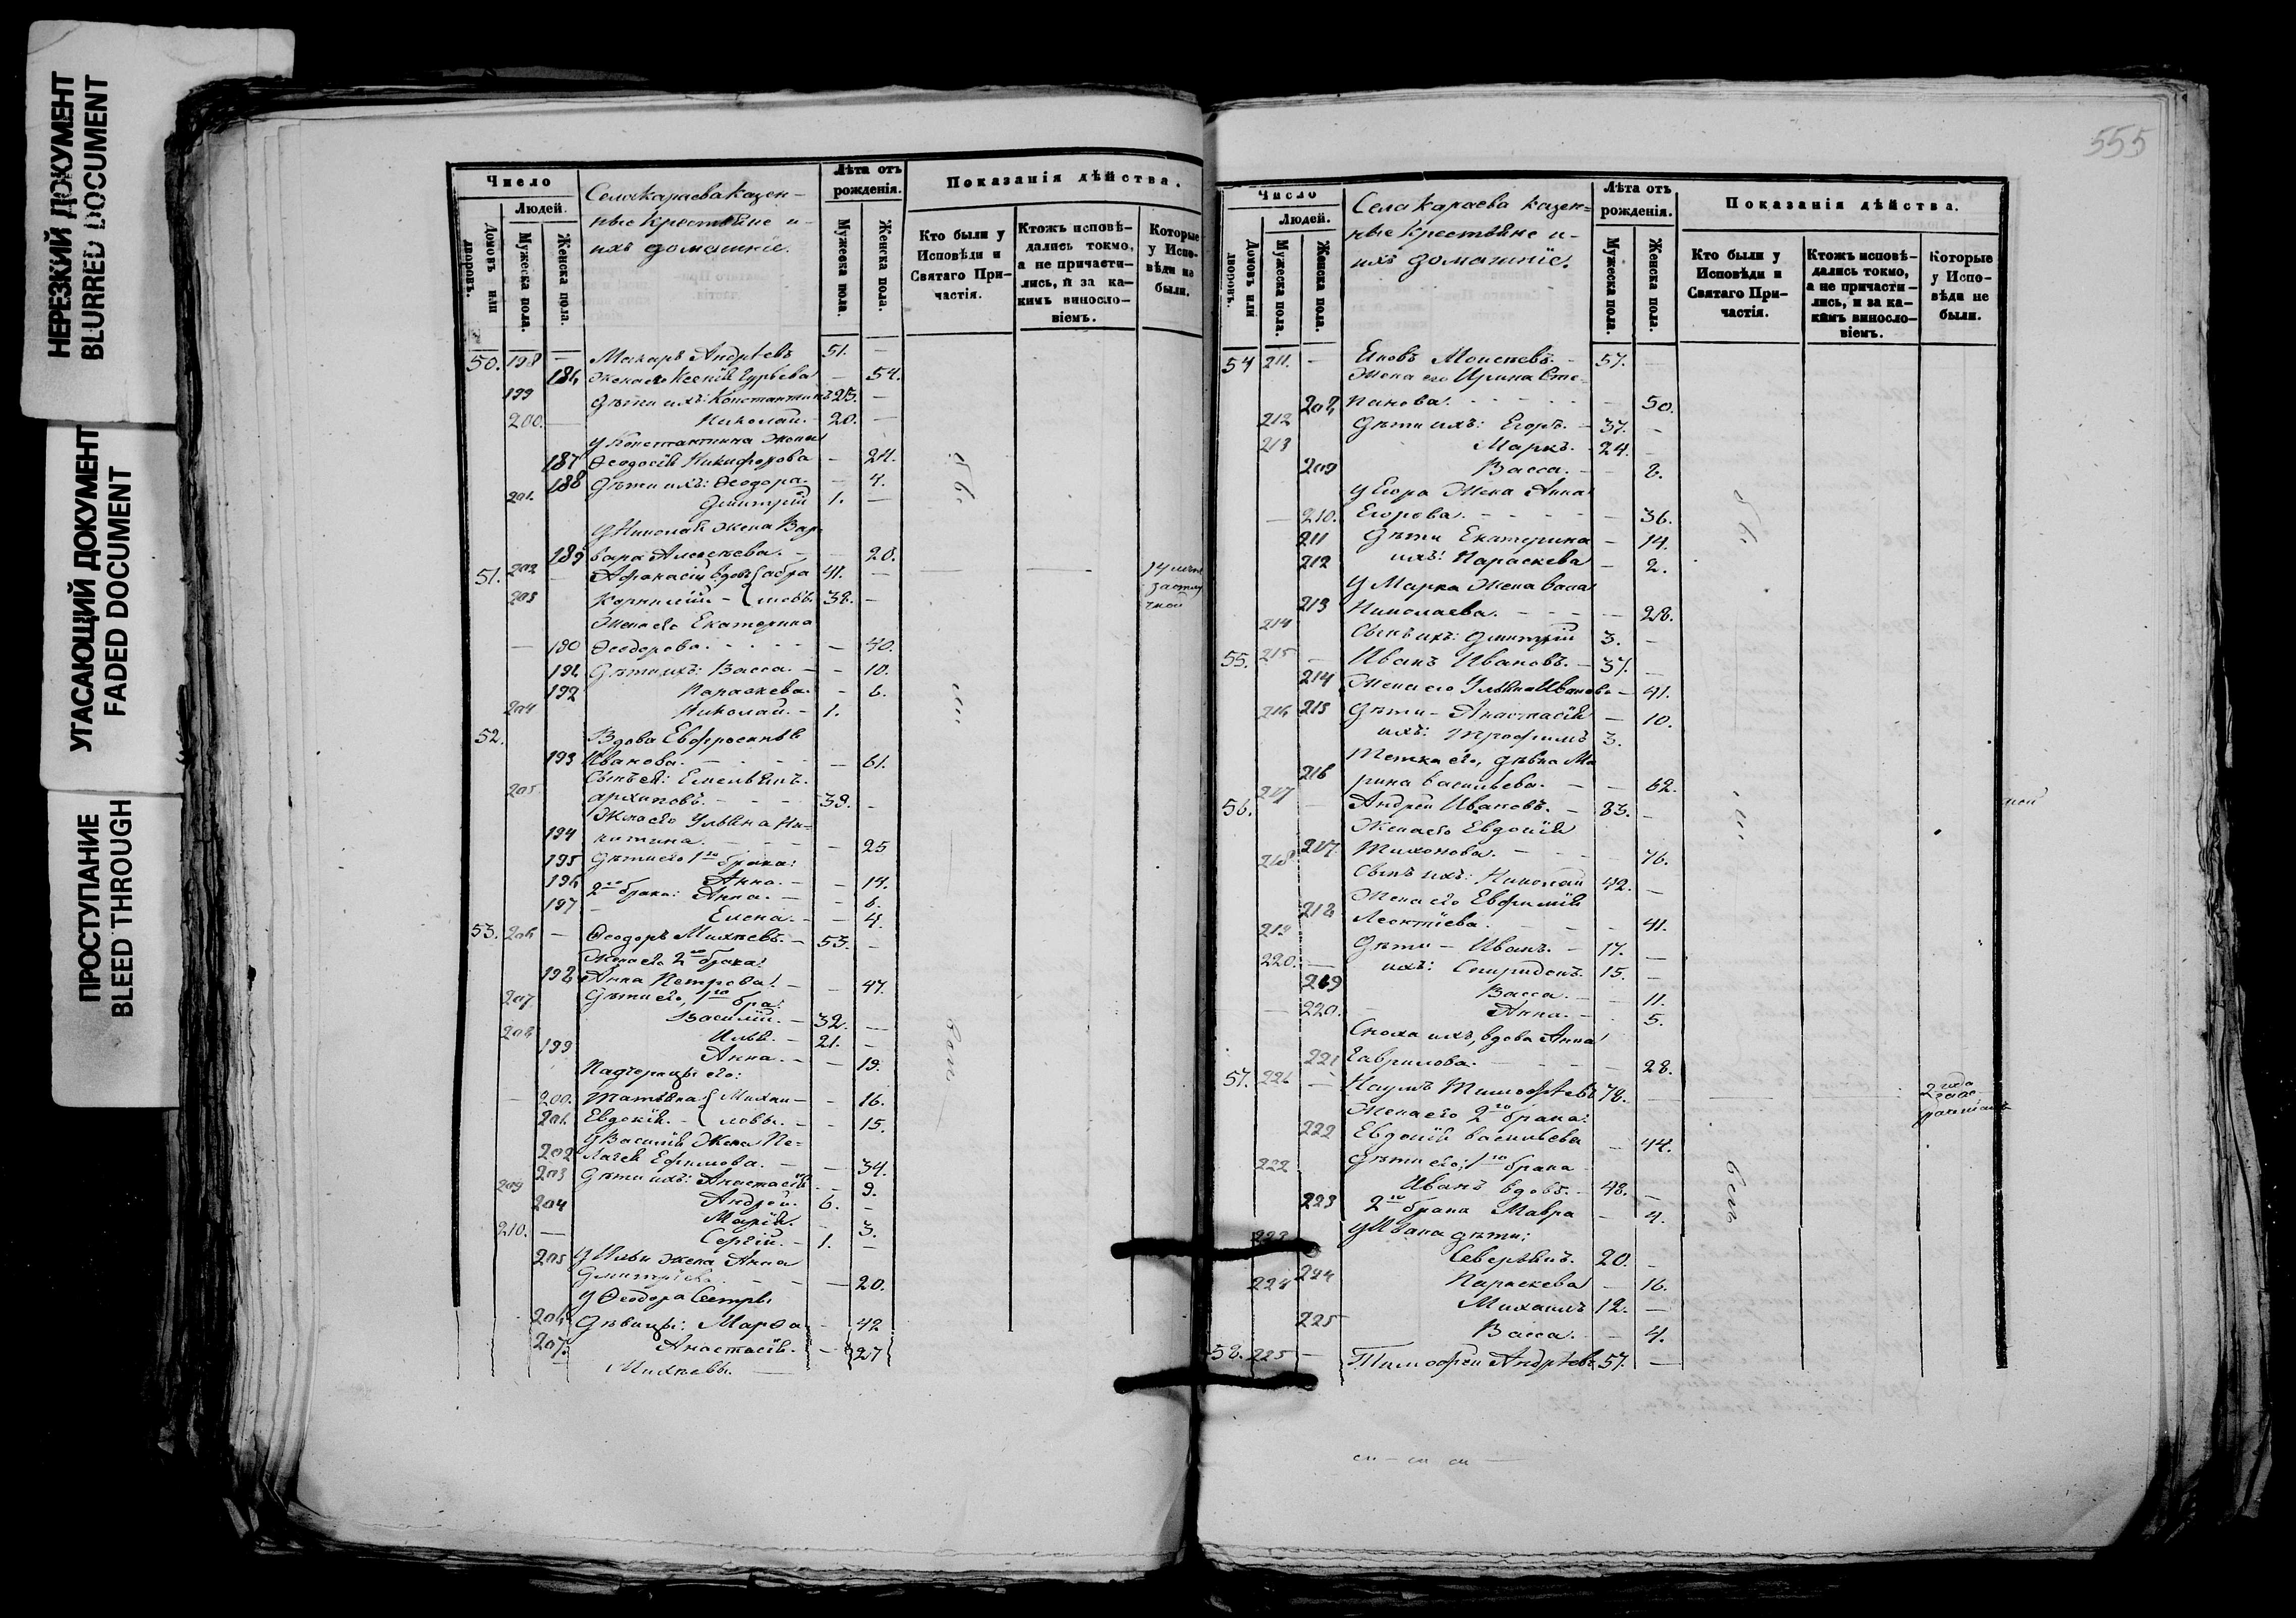 НЕРЕЗКИЙ ДОКУМЕНТ
BLURRED DOCUMENT
УГАСАЮЩИЙ ДОКУМЕНТ
FADED DOCUMENT
ПРОСТУПАНИЕ
BLEED THROUGH
Число
Людей.
Домовъ или дворовъ.
Мужеска пола.
Женска пола.
Села Караева казен-
ные крестьяне и
ихъ домашніе.
Лѣта отъ рожденія.
Мужеска пола.
Женска пола.
Показанія дѣйства.
Кто были у Исповѣди и Святаго При-частія.
Ктожъ исповѣ-дались токмо, а не причасти-лись, и за ка-кимъ винословіемъ.
Которые у Испо-вѣди не были.
50. 198 — Макаръ Андрѣевъ 51. —
186 Жена его Ксенія Гурьева — 54.
199 Дѣти ихъ: Константинъ 25. —
200. — Николай. — 20. —
У Константина жена
187 Ѳеодосія Никифорова — 24.
188 Дѣти ихъ: Ѳеодора. — 4.
201. Димитрій 1. —
У Николая жена Вар-
189 вара Алексѣева. — 20.
51. 202 — Афанасій вдовъ 41. —
203 Корнилій — 38. —
Жена его Екатерина
— 190 Ѳеодорова. — 40.
191 Дѣти ихъ: Васса. — 10.
192 Параскева. — 6.
204 Николай. — 1.
52. Вдова Евфросинія
193 Иванова. — 61.
205 Сынъ ея: Емельянъ
Архиповъ. — 39. —
Жена его Ульяна Ни-
194 китина. — 25
195 Дѣти его 1го брака:
Анна. — 14.
196 2го брака: Анна. — 6.
197 Елена. — 4.
53. 206 — Ѳеодоръ Михѣевъ. — 53. —
Жена его 2го брака:
198 Анна Петрова. — 47.
207 Дѣти его, 1го бра:
Василій. — 32. —
208 Илья. — 21. —
199 Анна. — 19.
Падчерицы его:
— 200. Татьяна — 16.
201 Евдокія. — 15.
У Василія жена Пе-
202 лагея Ефимова. — 34.
203 Дѣти ихъ: Анастасія — 9.
209 Андрей. 6. —
204 Марія. — 3.
210. — Сергій. — 1. —
205 У Ильи жена Анна
Димитріева — 20.
У Ѳеодора сестры
206 дѣвицы: Марѳа — 42
207. Анастасія. — 27
Михѣевы. —
555
Число
Людей.
Домовъ или дворовъ.
Мужеска пола.
Женска пола.
Села Караева казен-
ные крестьяне и
ихъ домашніе.
Лѣта отъ рожденія.
Мужеска пола.
Женска пола.
Показанія дѣйства.
Кто были у Исповѣди и Святаго При-частія.
Ктожъ исповѣ-дались токмо, а не причасти-лись, и за ка-кимъ винословіемъ.
Которые у Испо-вѣди не были.
54 211. — Моисѣевъ. — 57. —
Жена его Ирина Сте-
208 панова. — 50.
212 Дѣти ихъ: Егоръ. — 37. —
213 Маркъ. — 24. —
209 Васса. — 8.
У Егора жена Анна
— 210. Егорова. — 36.
211 Дѣти Екатерина — 14.
212 ихъ: Параскева — 2.
У Марка жена
213 Николаева. — 28.
214 Сынъ ихъ: Димитрій 3. —
55. 215 — Иванъ Ивановъ. — 37. —
214 Жена его Ульяна Иванова — 41.
216 215 Дѣти — Анастасія — 10.
ихъ: Трофимъ 3.
Тетка его, дѣвка Ма
216 рина Васильева. — 62.
56. 217 — Андрей Ивановъ. — 83. —
Жена его Евдокія
217. Тихонова. — 76.
218 Сынъ ихъ: Николай 42. —
Жена его Евфимія
218 Леонтіева. — 41.
219 Дѣти — Иванъ. — 17. —
220. — ихъ: Спиридонъ. 15. —
219 Васса. — 11.
— 220. Анна. — 5.
Сноха ихъ, вдова Анна
221 Гаврилова. — 28.
57. 221 — Наумъ Тимофѣевъ 78. —
Жена его 2го брака:
222 Евдокія Васильева — 44.
222 Дѣти его; 1го брака
Иванъ вдовъ. — 48. —
223 2го брака Мавра — 4.
У Ивана дѣти:
223 Северьянъ. 20. —
224 Параскева — 16.
224 Михаилъ 12. —
225 Васса. — 4.
58. 225 — Тимофей Андрѣевъ 57. —